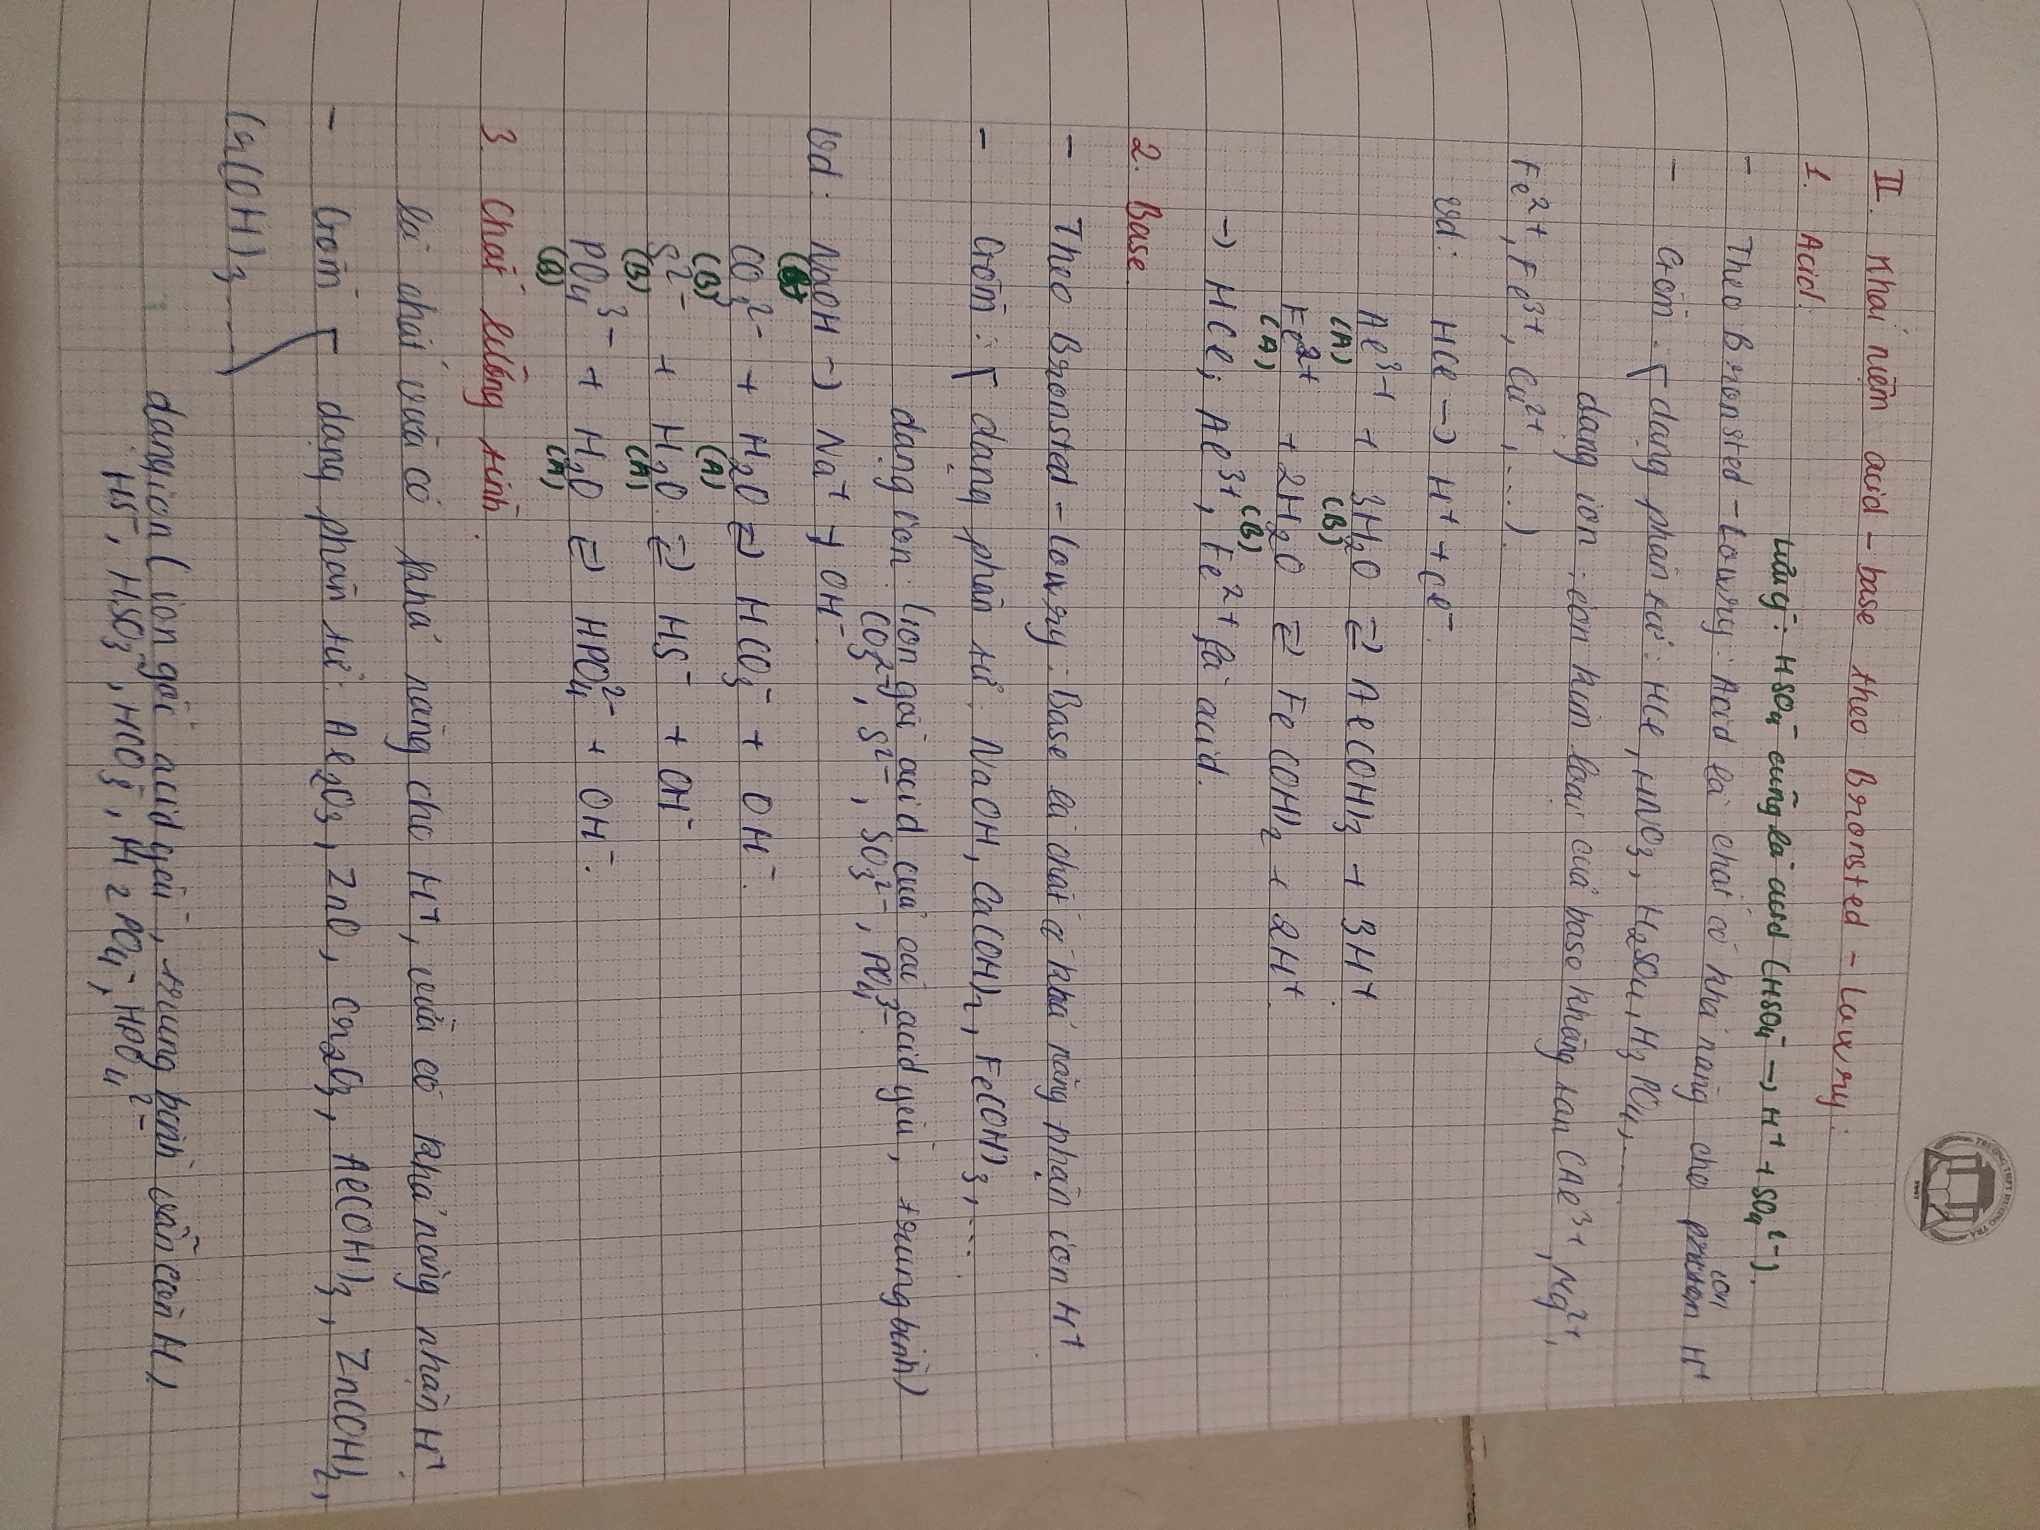 TRƯỜNG THPT HƯƠNG TRÀ
II. Khái niệm acid - base theo Bronsted - Lowry:
1. Acid:
Lưu ý: HSO₄⁻ cũng là acid (HSO₄⁻ → H⁺ + SO₄²⁻).
- Theo Bronsted - Lowry: Acid là chất có khả năng cho proton H⁺
ion
- Gồm: dạng phân tử: HCl, HNO₃, H₂SO₄, H₃PO₄, ....
dạng ion: ion kim loại của base không tan (Al³⁺, Mg²⁺,
Fe²⁺, Fe³⁺, Cu²⁺, ....).
Vd: HCl → H⁺ + Cl⁻.
Al³⁺ + 3H₂O ⇄ Al(OH)₃ + 3H⁺.
(A) (B)
Fe²⁺ + 2H₂O ⇄ Fe(OH)₂ + 2H⁺.
(A) (B)
→ HCl, Al³⁺, Fe²⁺ là acid.
2. Base.
- Theo Bronsted - Lowry: Base là chất có khả năng nhận ion H⁺
- Gồm: dạng phân tử: NaOH, Ca(OH)₂, Fe(OH)₃, ...
dạng ion: (ion gốc acid của các acid yếu, trung bình)
CO₃²⁻, S²⁻, SO₃²⁻, PO₄³⁻.
Vd: NaOH → Na⁺ + OH⁻.
(B)
CO₃²⁻ + H₂O ⇄ HCO₃⁻ + OH⁻.
(B) (A)
S²⁻ + H₂O ⇄ HS⁻ + OH⁻
(B) (A)
PO₄³⁻ + H₂O ⇄ HPO₄²⁻ + OH⁻.
(B) (A)
3. Chất lưỡng tính.
là chất vừa có khả năng cho H⁺, vừa có khả năng nhận H⁺.
- Gồm dạng phân tử: Al₂O₃, ZnO, Cr₂O₃, Al(OH)₃, Zn(OH)₂,
Cr(OH)₃.....
dạng ion (ion gốc acid yếu, trung bình vẫn còn H)
HS⁻, HSO₃⁻, HCO₃⁻, H₂PO₄⁻, HPO₄²⁻